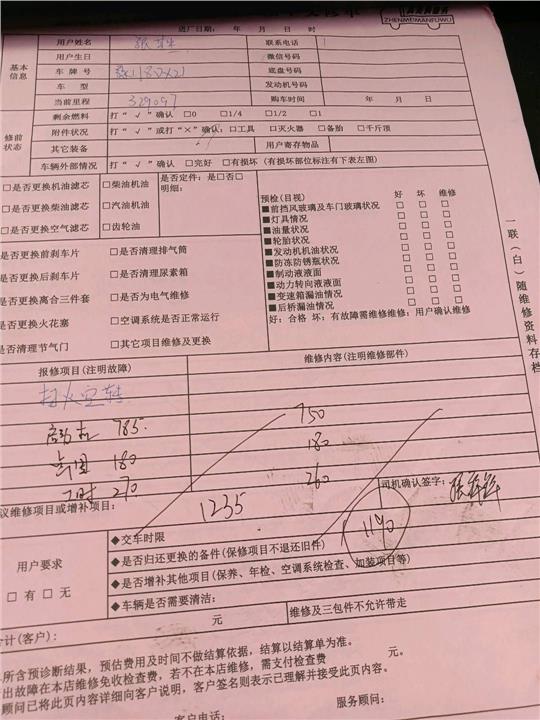 ZHENMEIMANFUWU
进厂日期： 年 月 日 时
基本信息
用户姓名 联系电话
用户生日 微信号码
车牌号 底盘号码
车型 发动机号码
当前里程 329097 购车时间 年 月 日
修前状态
剩余燃料 打“√”确认 □0 □1/4 □1/2 □1
附件状况 打“√”或打“×”确认：□工具 □灭火器 □备胎 □千斤顶
其它装备 用户寄存物品
车辆外部情况 打“√”确认 □完好 □有损坏（有损坏部位标注有下表左图）
□是否更换机油滤芯 □柴油机油 是否定件：是□否□
明细：
□是否更换柴油滤芯 □汽油机油
□是否更换空气滤芯 □齿轮油
是否更换前刹车片 □是否清理排气筒
是否更换后刹车片 □是否清理尿素箱
是否更换离合三件套 □是否为电气维修
是否更换火花塞 □空调系统是否正常运行
是否清理节气门 □其它项目维修及更换
预检(目视) 好 坏 维修
■前挡风玻璃及车门玻璃状况 □ □ □
■灯具情况 □ □ □
■油量状况 □ □ □
■轮胎状况 □ □ □
■发动机机油状况 □ □ □
■防冻防锈瓶状况 □ □ □
■制动液液面 □ □ □
■动力转向液液面 □ □ □
■变速箱漏油情况 □ □ □
■后桥漏油情况 □ □ □
好：合格 坏：有故障需维修维修：用户确认维修
一联（白）随维修资料存档
报修项目(注明故障) 维修内容(注明维修部件)
打火空转
785 750
180 180
270 260
议维修项目或增补项目： 1235 司机确认签字：
1190
用户要求
□有 □无
◆交车时限
◆是否归还更换的备件(保修项目不退还旧件)
◆是否增补其他项目(保养、年检、空调系统检查、加装项目等)
◆车辆是否需要清洁：
元 维修及三包件不允许带走
合计(客户)：
所含预诊断结果，预估费用及时间不做结算依据，结算以结算单为准。
出故障在本店维修免收检查费，若不在本店维修，需支付检查费 元。
顾问已将此页内容详细向客户说明，客户签名则表示已理解并接受此页内容。
服务顾问：
客户电话：